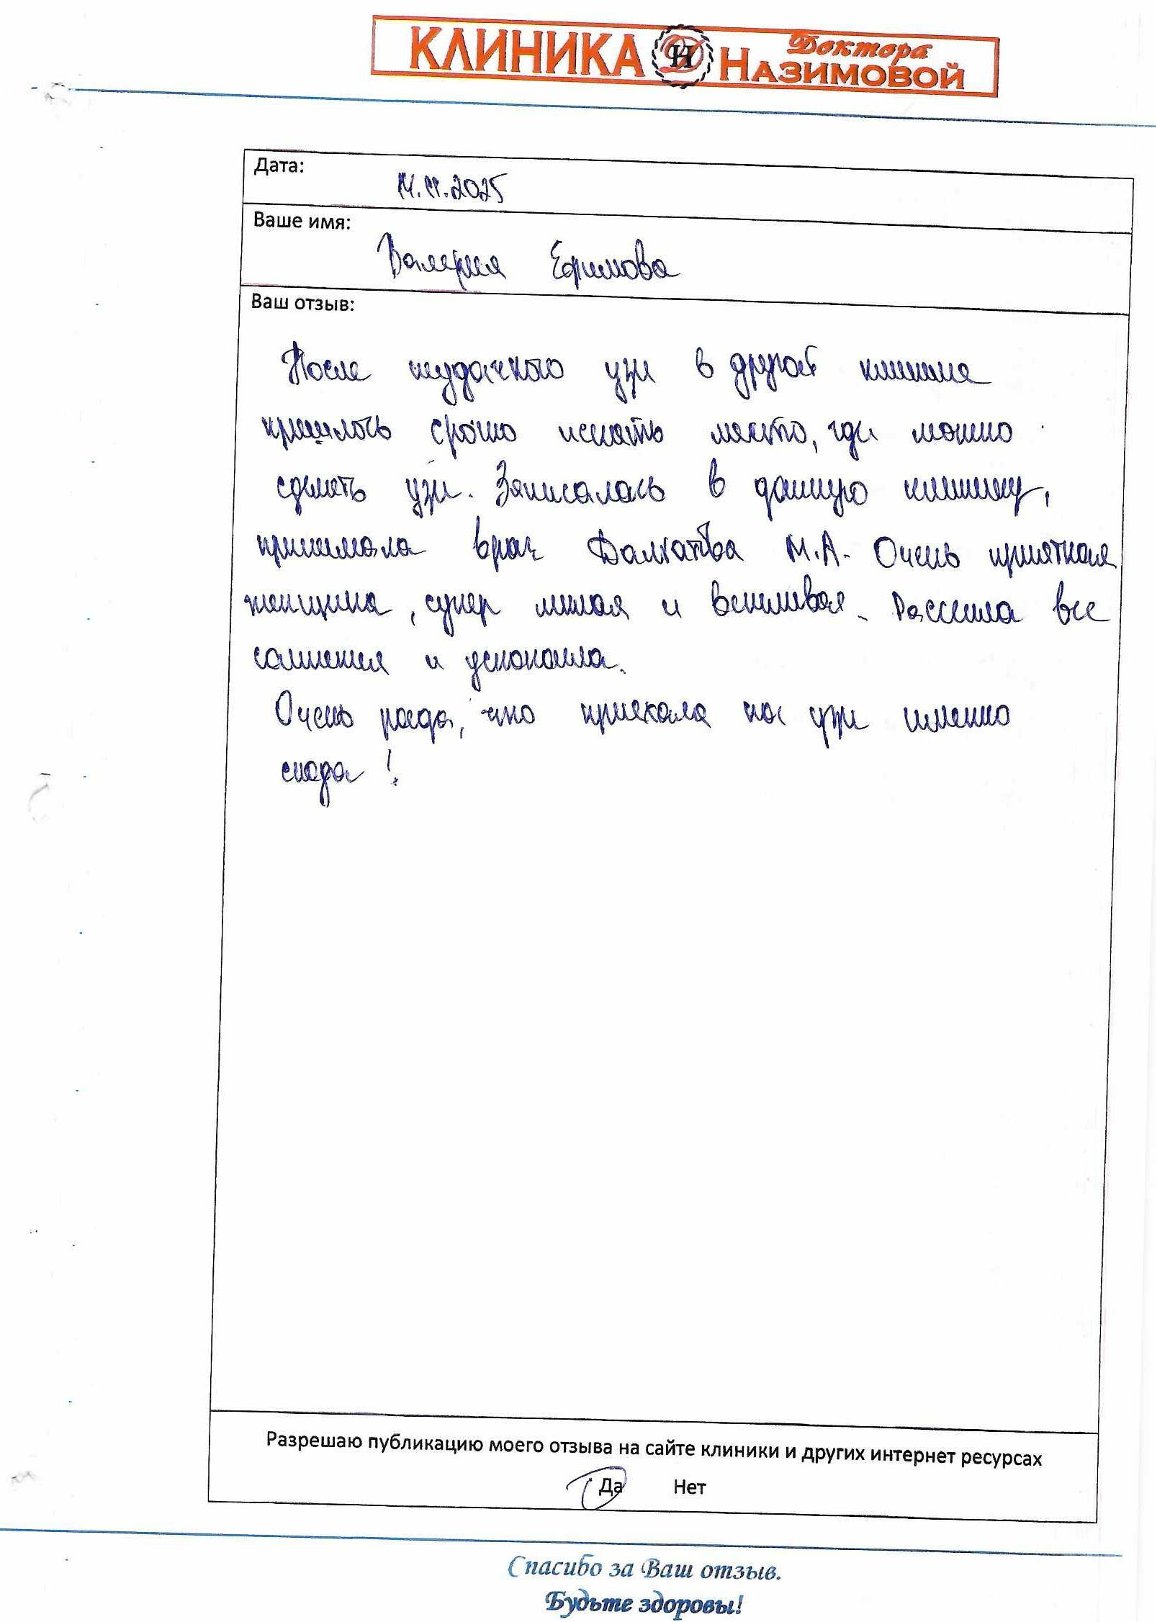 КЛИНИКА ДН Доктора Назимовой
Дата: 14.11.2025
Ваше имя:
Валерия Ефимова
Ваш отзыв:
После неудачного узи в другой клинике
пришлось срочно искать место, где можно
сделать узи. Записалась в данную клинику,
принимала врач М.А. Очень приятная
женщина, супер милая и вежливая. Рассеяла все
сомнения и успокоила.
Очень рада, что приехала на узи именно
сюда!
Разрешаю публикацию моего отзыва на сайте клиники и других интернет ресурсах
Да Нет
Спасибо за Ваш отзыв.
Будьте здоровы!